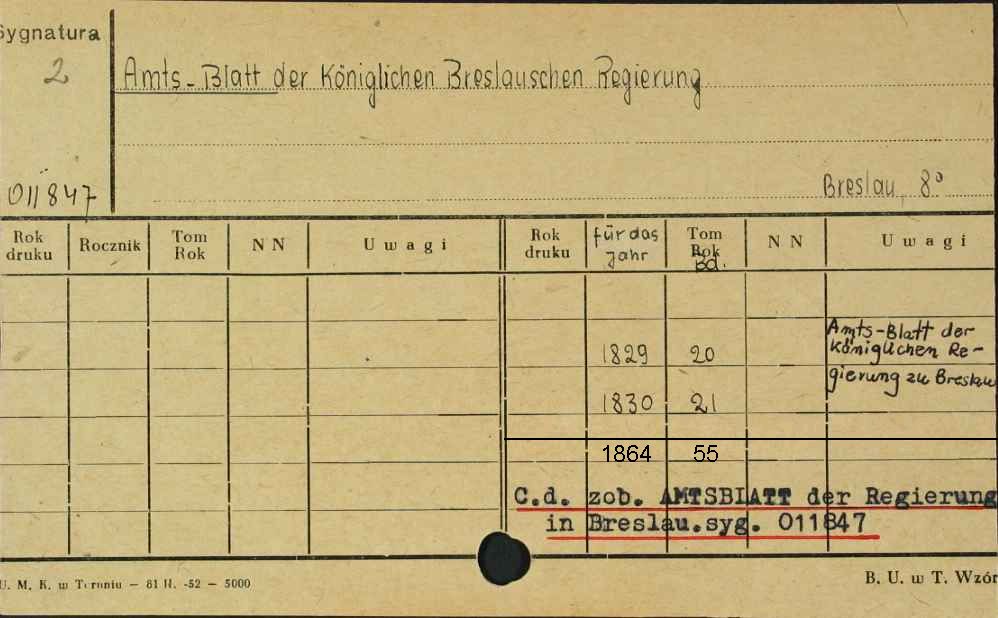 Sygnatura
2
Amts-Blatt der Königlichen Breslauschen Regierung
011847
Breslau, 8°
Rok druku Rocznik Tom Rok N N Uwagi Rok druku für das Jahr Tom Rok Bd. N N Uwagi
Amts-Blatt der
1829 20 Königlichen Re-
gierung zu Breslau
1830 21
1864 55
C.d. zob. AMTSBLATT der Regierung
in Breslau.syg. 011847
U. M. K. w Toruniu — 81 II. -52 — 5000
B. U. w T. Wzór